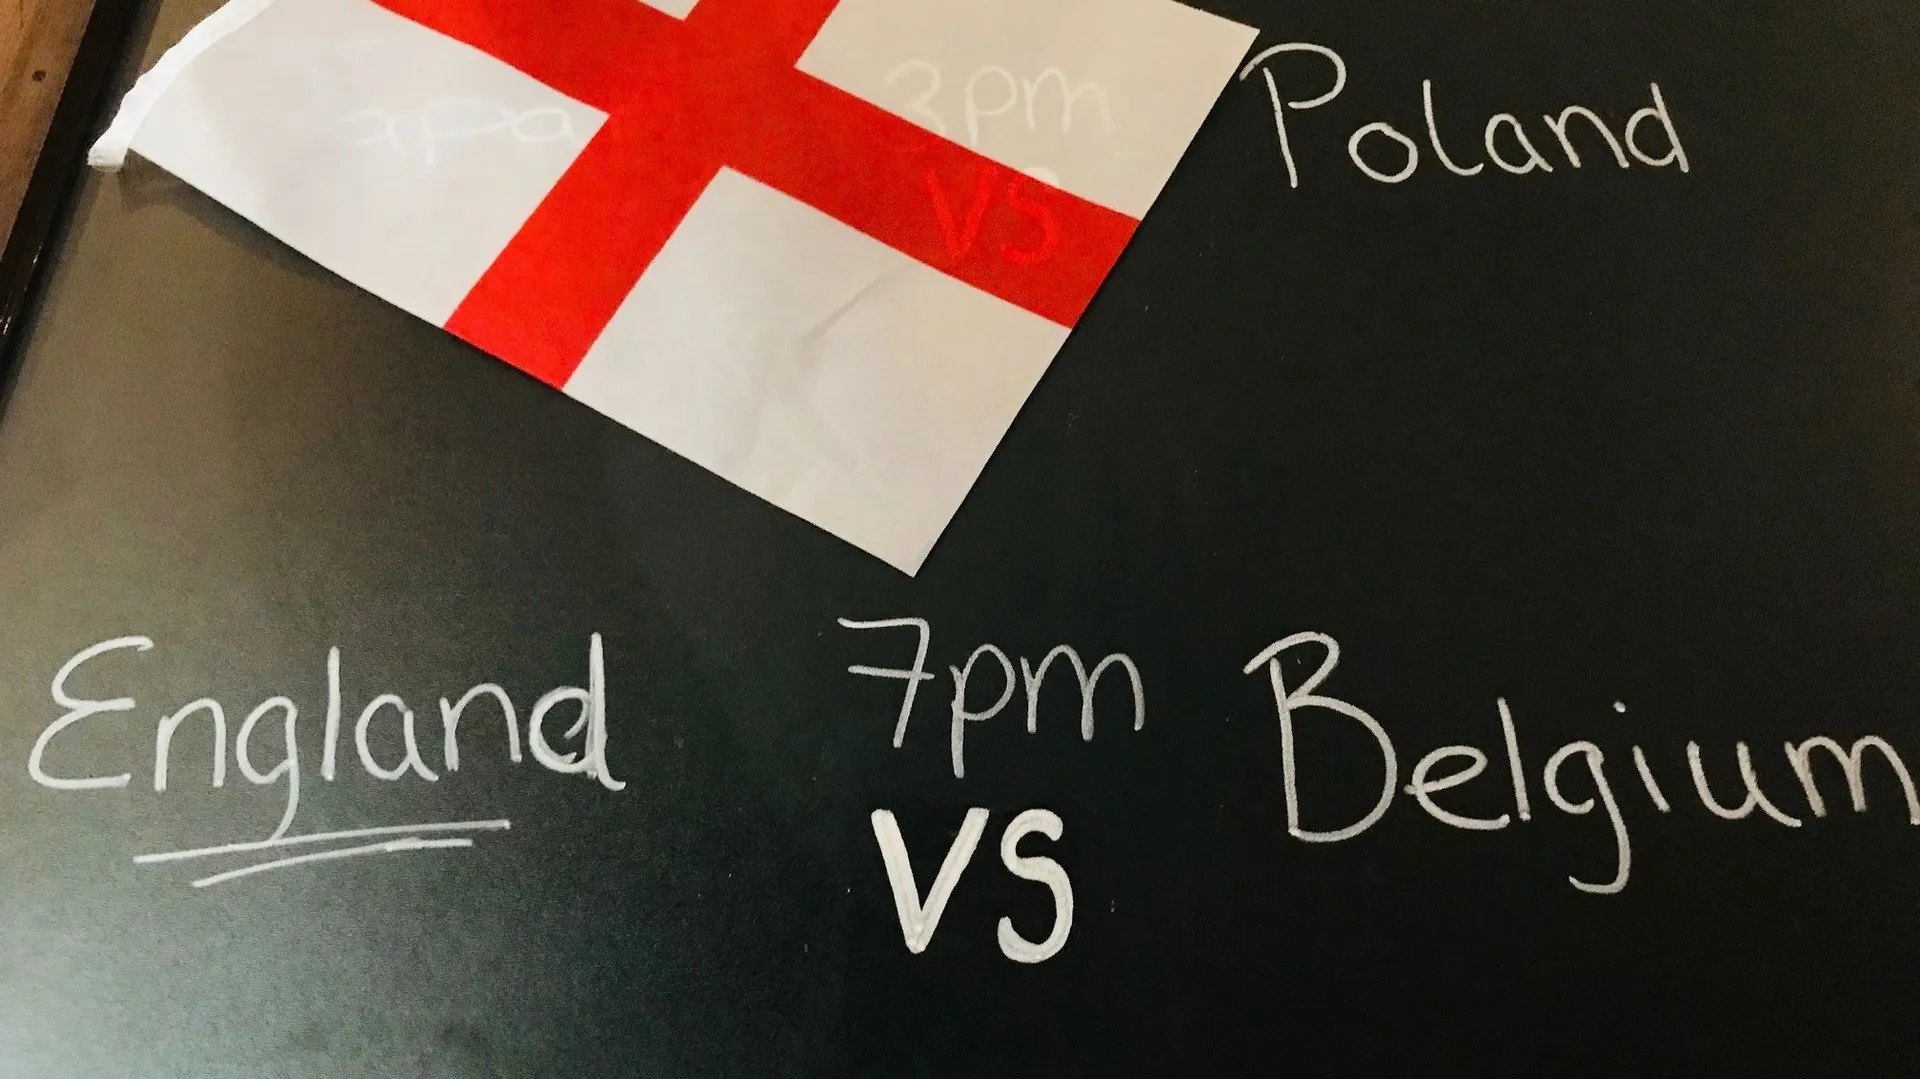 3pm
apa
VS
Poland
7pm
England
VS
Belgium